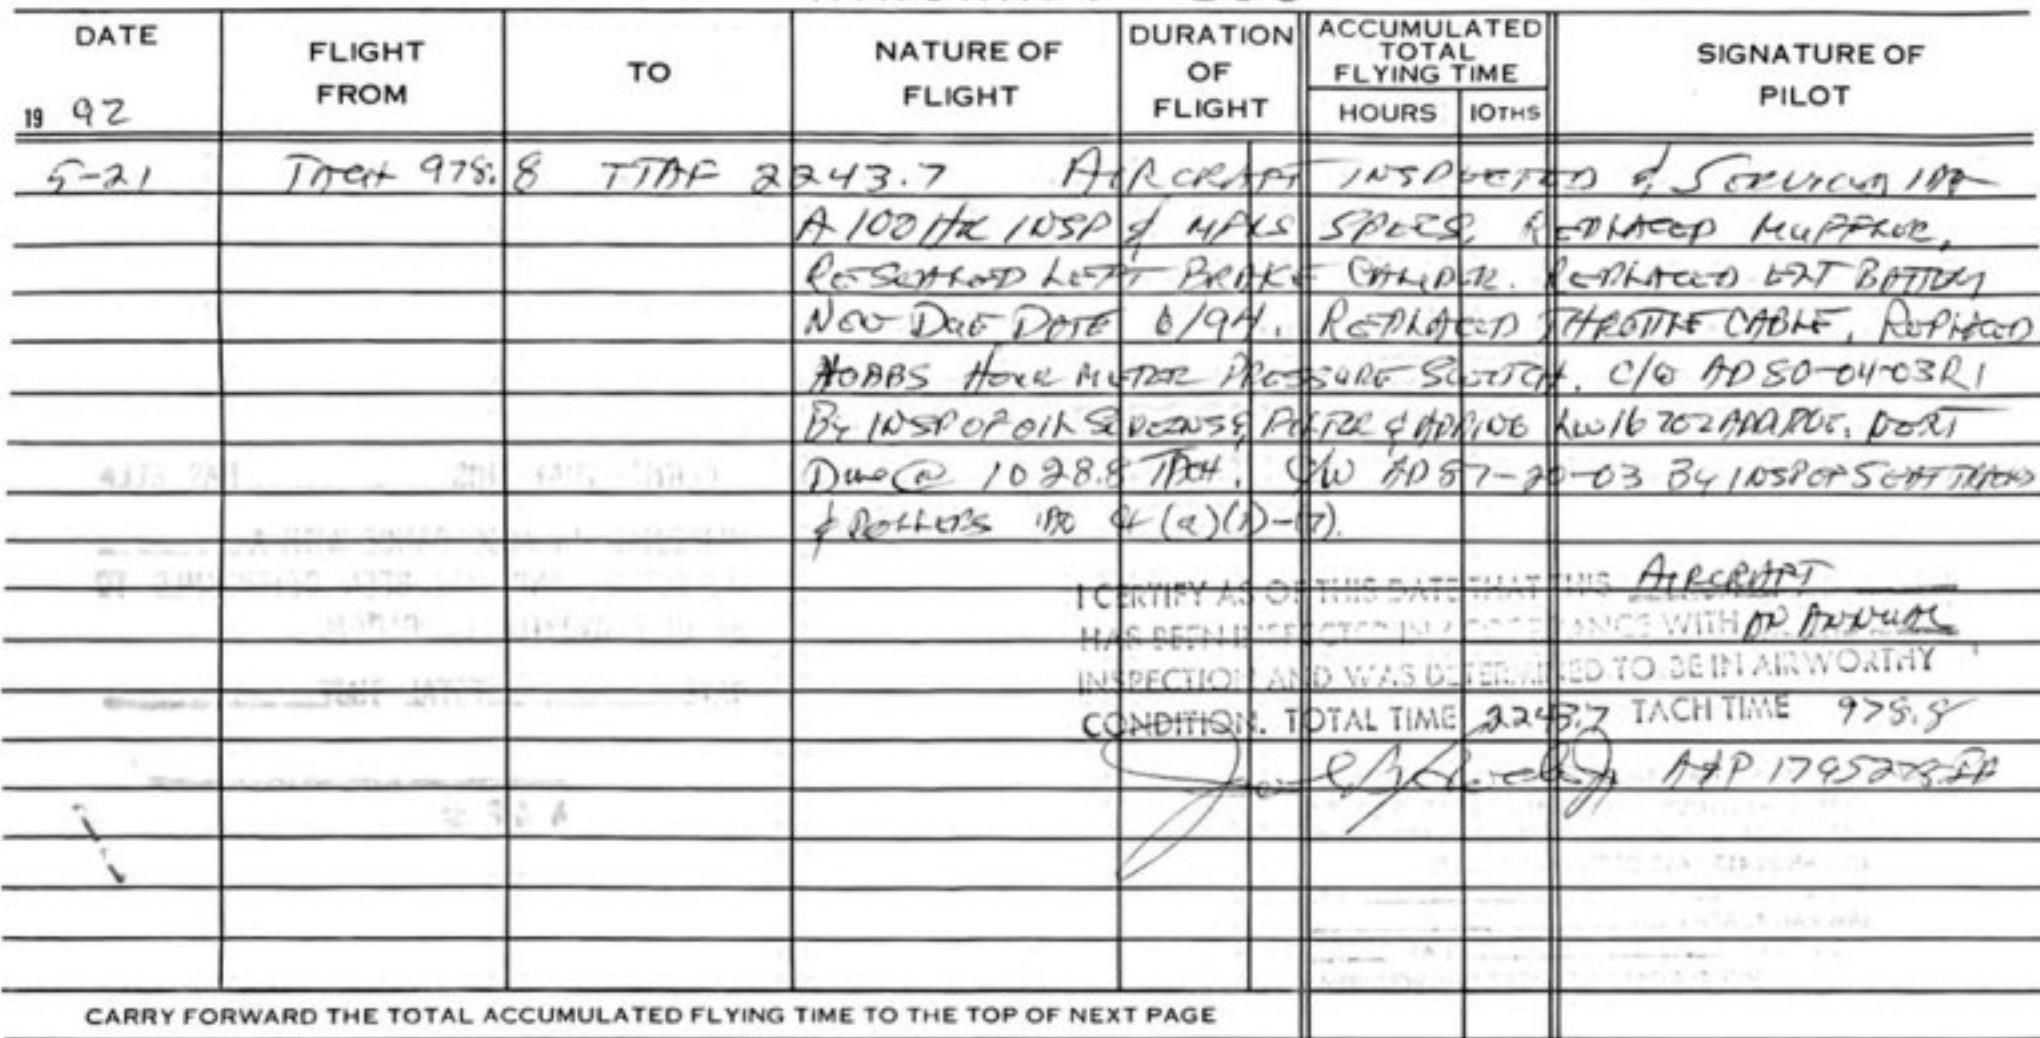 DATE
FLIGHT FROM
TO
NATURE OF FLIGHT
DURATION OF FLIGHT
ACCUMULATED TOTAL FLYING TIME
HOURS 10THS
SIGNATURE OF PILOT
19 92
5-21 TACH 978.8 TTAF 2243.7 AIRCRAFT INSPECTED & SERVICED IAW
A 100 HR INSP & MFRS SPECS. REPLACED MUFFLER,
RESEALED LEFT BRAKE CALIPER. REPLACED ELT BATTERY
NEW DUE DATE 6/94. REPLACED THROTTLE CABLE, REPLACED
HOBBS HOUR METER PRESSURE SWITCH. C/W AD 80-04-03R1
BY INSP OF OIL SCREENS & FILTER & ADDING LW16702 ADDITIVE. NEXT
DUE @ 1028.8 TACH. C/W AD 87-20-03 BY INSP OF SEAT TRACKS
& ROLLERS (a)(1)-(7).
I CERTIFY AS OF THIS DATE THAT THIS AIRCRAFT
HAS BEEN INSPECTED IN ACCORDANCE WITH AN ANNUAL
INSPECTION AND WAS DETERMINED TO BE IN AIRWORTHY
CONDITION. TOTAL TIME 2243.7 TACH TIME 978.8
A&P 1795273 IA
CARRY FORWARD THE TOTAL ACCUMULATED FLYING TIME TO THE TOP OF NEXT PAGE